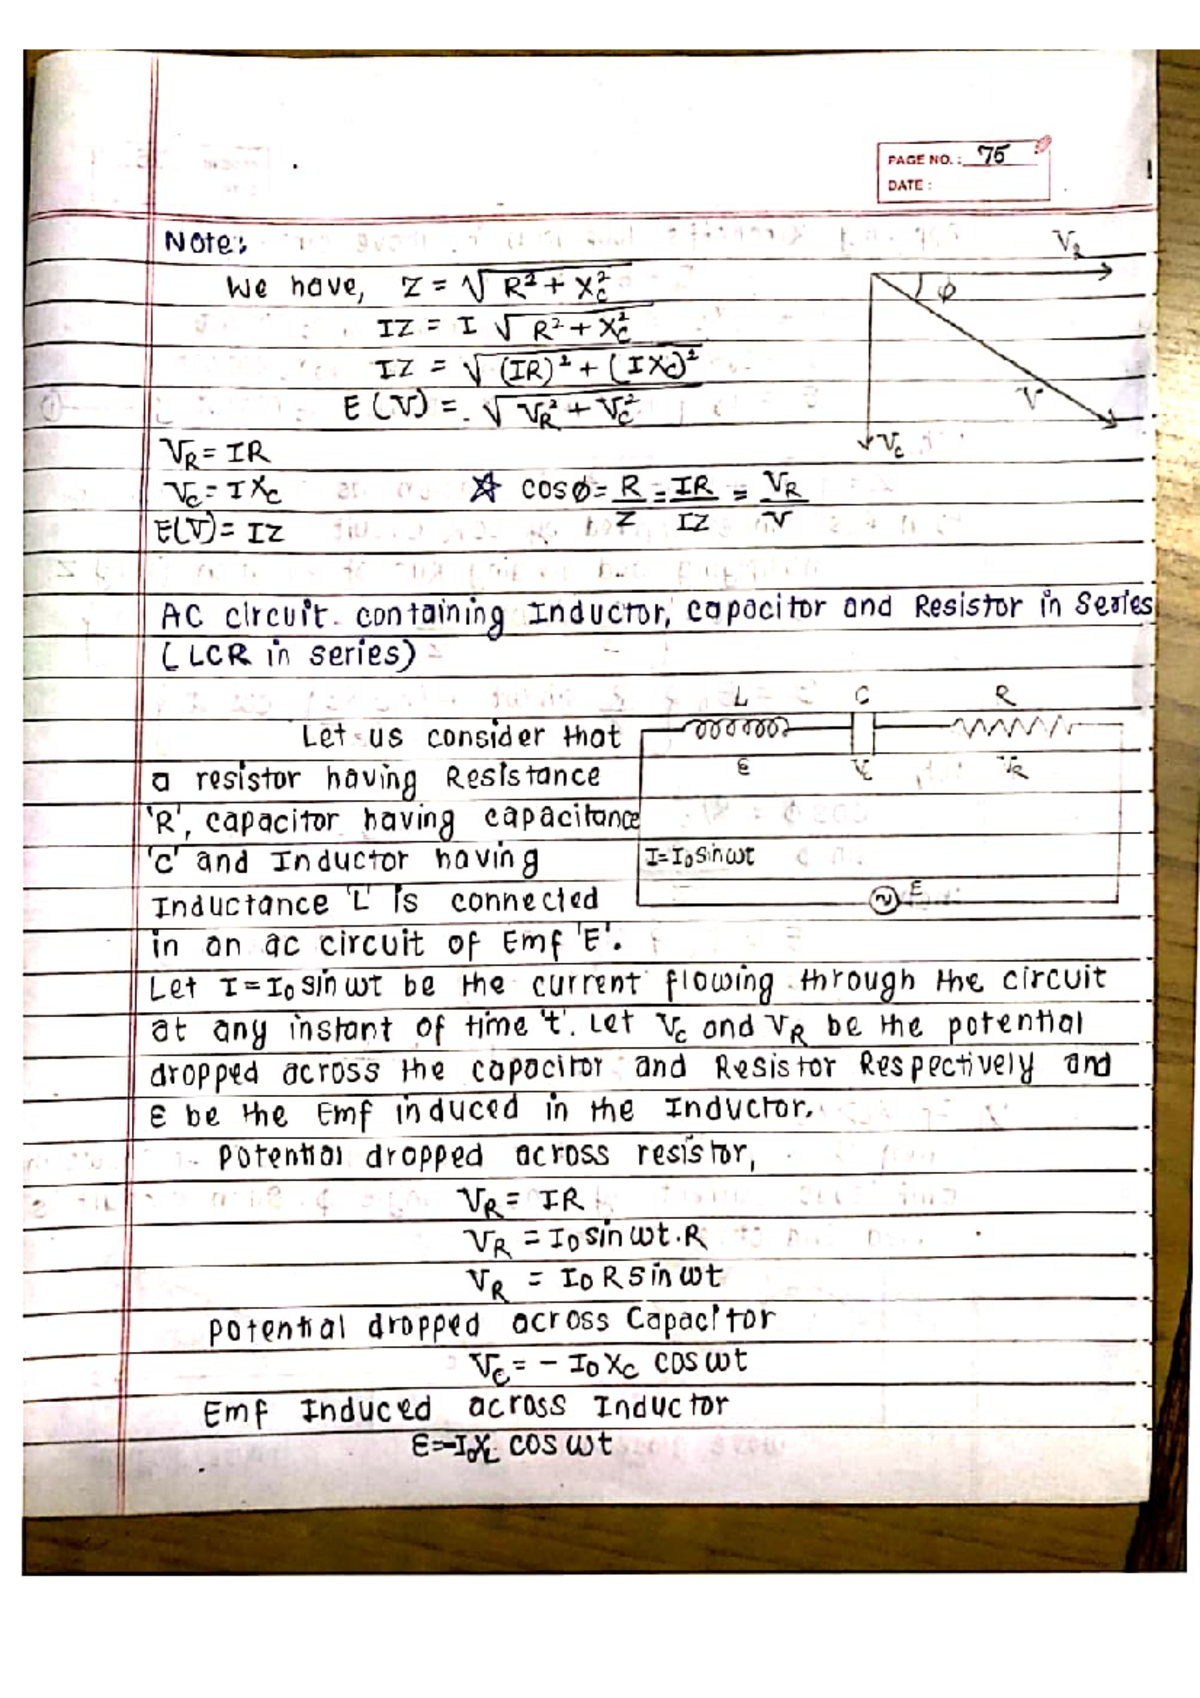 PAGE NO.: 75
DATE:
Note:
We have, Z = √R² + X_C²
IZ = I √R² + X_C²
IZ = √(IR)² + (IX_C)²
E(V) = √V_R² + V_C²
V_R
ϕ
V
V_C
V_R = IR
V_C = IX_C
E(V) = IZ
☆ cosϕ = R/Z = IR/IZ = V_R/V
AC circuit containing Inductor, capacitor and Resistor in Series
(LCR in series)
L C R
ε V_C V_R
I=I₀sinωt
E
Let us consider that
a resistor having Resistance
'R', capacitor having capacitance
'C' and Inductor having
Inductance 'L' is connected
in an ac circuit of Emf 'E'.
Let I = I₀ sin ωt be the current flowing through the circuit
at any instant of time 't'. Let V_C and V_R be the potential
dropped across the capacitor and Resistor Respectively and
ε be the Emf induced in the Inductor.
Potential dropped across resistor,
V_R = IR
V_R = I₀ sin ωt . R
V_R = I₀ R sin ωt
Potential dropped across Capacitor
V_C = - I₀ X_C cos ωt
Emf Induced across Inductor
ε = -I₀X_L cos ωt